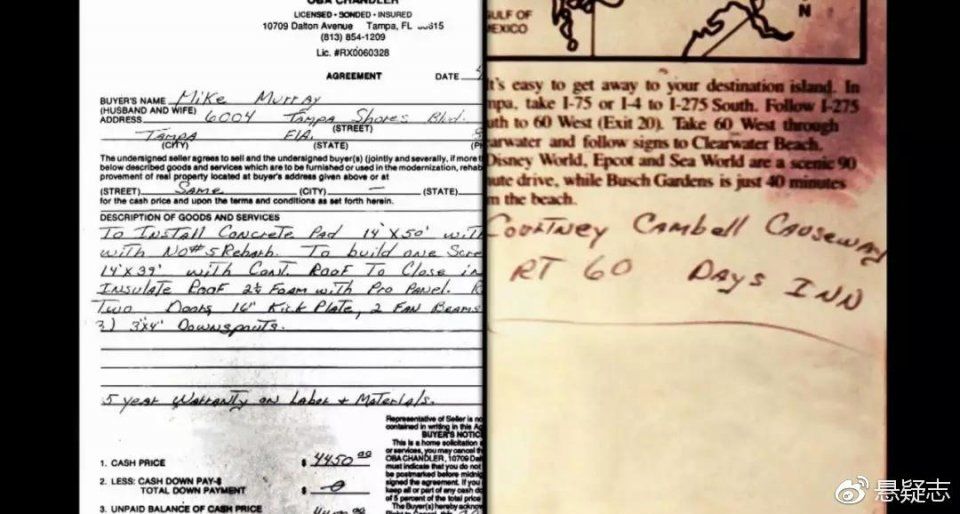 OBA CHANDLER
LICENSED • BONDED • INSURED
10709 Dalton Avenue Tampa, FL 33615
(813) 854-1209
Lic. #RX0060328
AGREEMENT
DATE
BUYER'S NAME Mike Murray
(HUSBAND AND WIFE)
ADDRESS 6004 Tampa Shores Blvd.
(STREET)
Tampa Fla.
(CITY) (STATE)
The undersigned seller agrees to sell and the undersigned buyer(s) (jointly and severally, if more t
below described goods and services which are to be furnished or used in the modernization, rehab
provement of real property located at buyer's address given above or at
(STREET) Same (CITY) — (STATE)
for the cash price and upon the terms and conditions as set forth herein.
DESCRIPTION OF GOODS AND SERVICES
To Install Concrete Pad 14' X 50' with
with No# 5 Rebarh. To build one Scre
14' X 39' with Cont. Roof To Close in
Insulate Roof 2½ Foam with Pro Panel.
Two Doors, 16" Kick Plate, 2 Fan Beams
3) 3"X4" Downspouts.
5 year Warranty on Labor + Materials.
1. CASH PRICE $ 4450 00
2. LESS: CASH DOWN PAY-$
TOTAL DOWN PAYMENT $ 0
3. UNPAID BALANCE OF CASH PRICE
Representative of Seller is no
contained in writing in this Ag
BUYER'S NOTIC
This is a home solicitation s
or services, you may cancel th
OBA CHANDLER, 10709 Dal
must indicate that you do not
be postmarked before midnig
signed the agreement. If you
keep all or part of any cash do
of 5 percent of the total price
The Buyer(s) hereby acknow
GULF OF
MEXICO
N
It's easy to get away to your destination island. In
mpa, take I-75 or I-4 to I-275 South. Follow I-275
uth to 60 West (Exit 20). Take 60 West through
arwater and follow signs to Clearwater Beach.
Disney World, Epcot and Sea World are a scenic 90
nute drive, while Busch Gardens is just 40 minutes
m the beach.
Courtney Cambell Causeway
RT 60 Days Inn
悬疑志